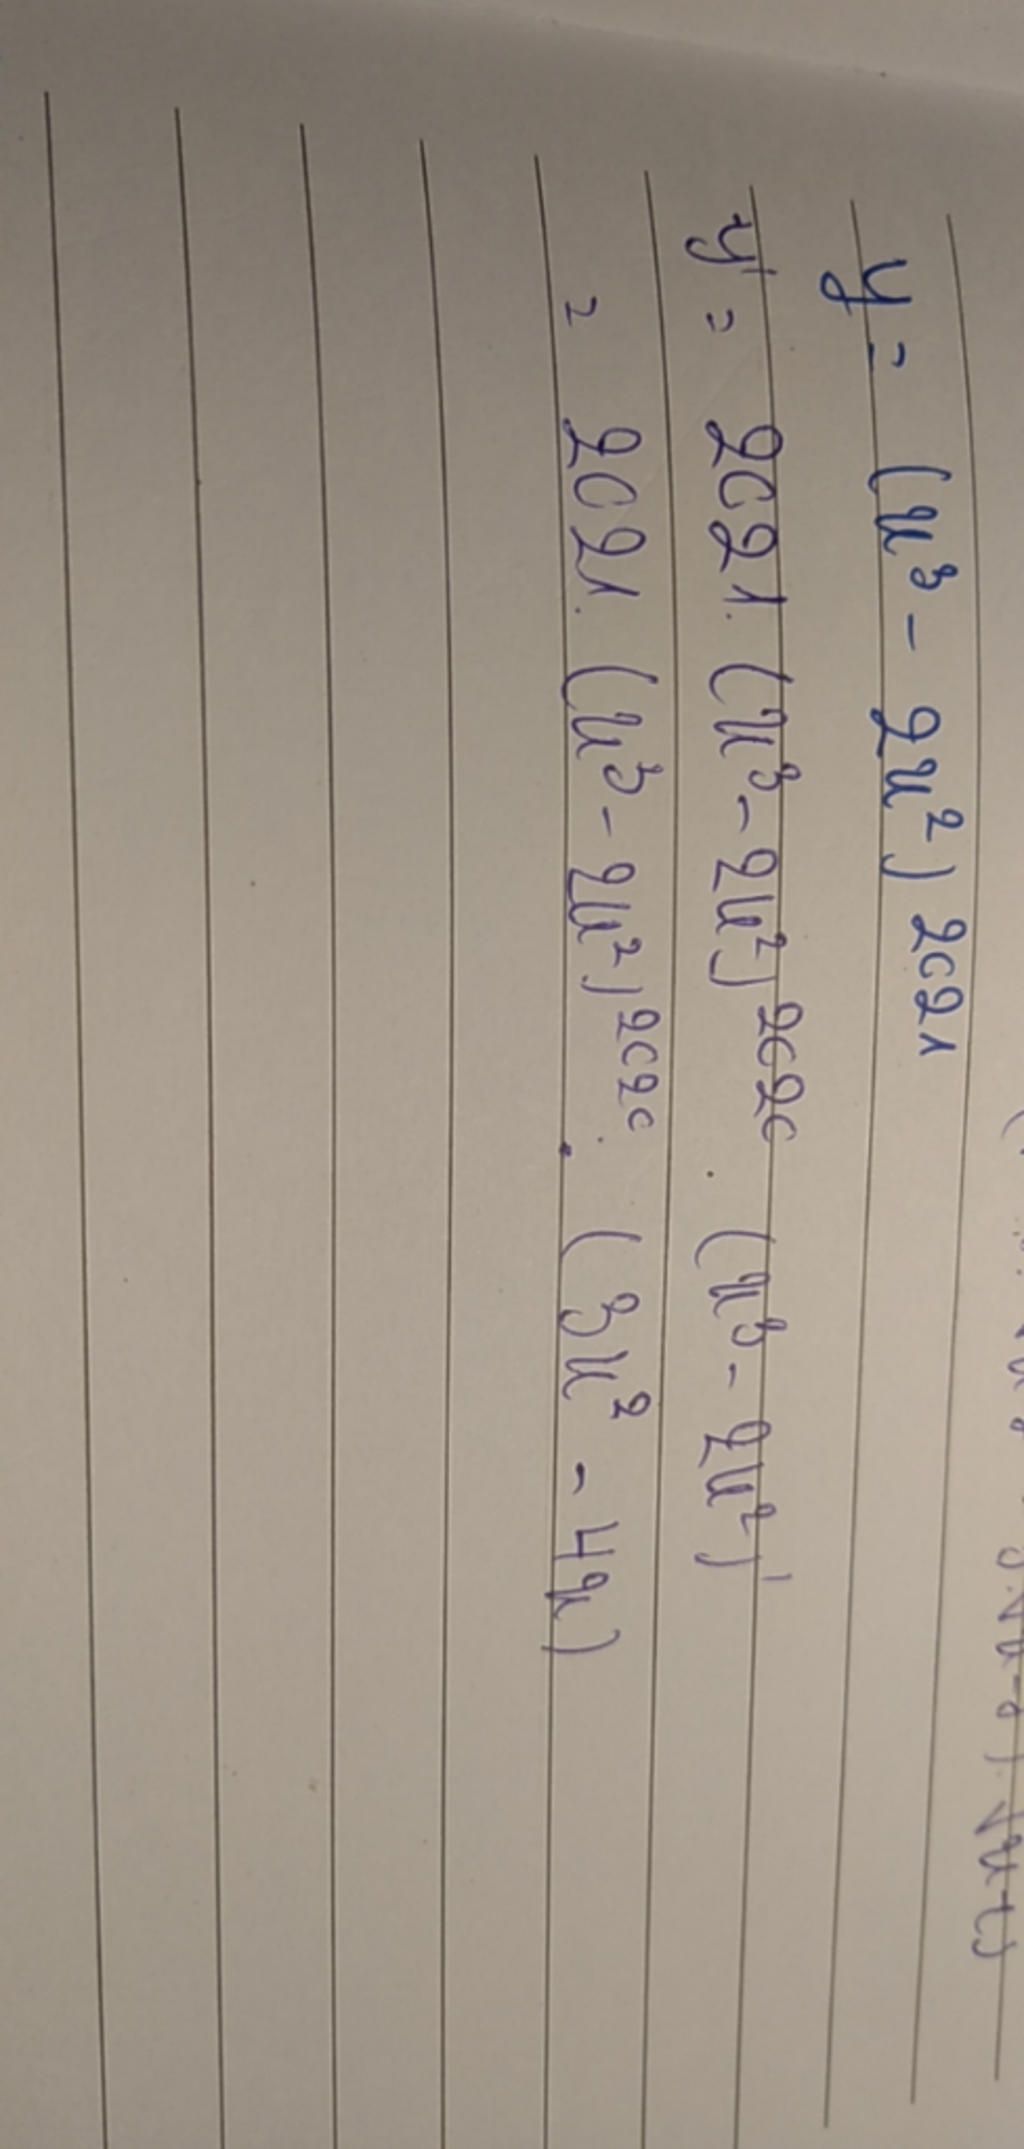 y = (x³ - 2x²)²⁰²¹
y' = 2021. (x³ - 2x²)²⁰²⁰ . (x³ - 2x²)'
= 2021. (x³ - 2x²)²⁰²⁰ . (3x² - 4x)